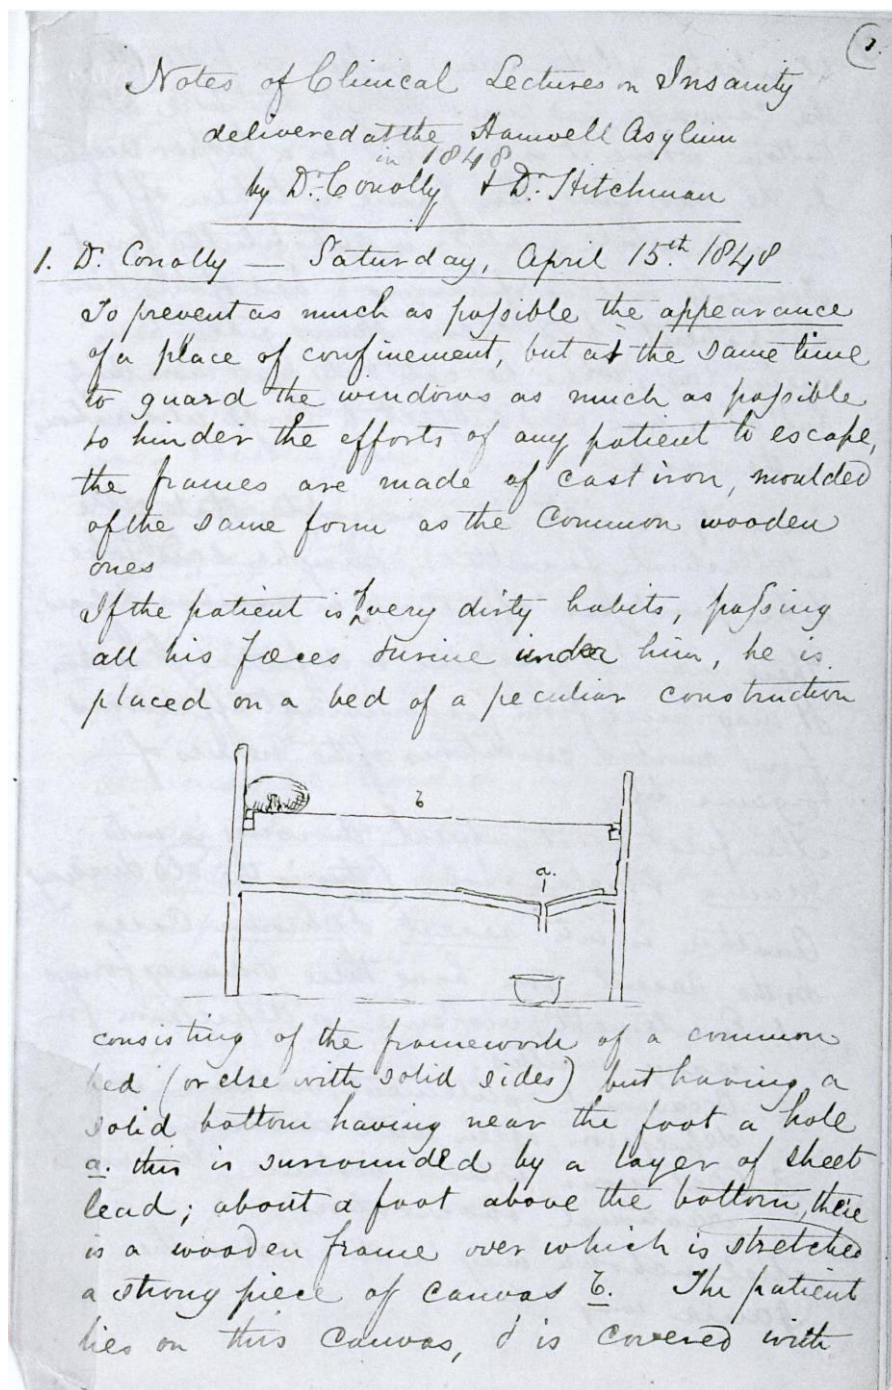 1.
Notes of Clinical Lectures on Insanity
delivered at the Hanwell Asylum
in 1848
by Dr. Conolly & Dr. Hitchman
1. Dr. Conolly — Saturday, April 15.th 1848
To prevent as much as possible the appearance
of a place of confinement, but at the same time
to guard the windows as much as possible
to hinder the efforts of any patient to escape,
the frames are made of cast iron, moulded
of the same form as the common wooden
ones
If the patient is of very dirty habits, passing
all his fæces & urine under him, he is
placed on a bed of a peculiar construction
b
a.
consisting of the framework of a common
bed (or else with solid sides) but having a
solid bottom having near the foot a hole
a. this is surrounded by a layer of sheet
lead; about a foot above the bottom, there
is a wooden frame over which is stretched
a strong piece of canvas b. The patient
lies on this canvas, & is covered with